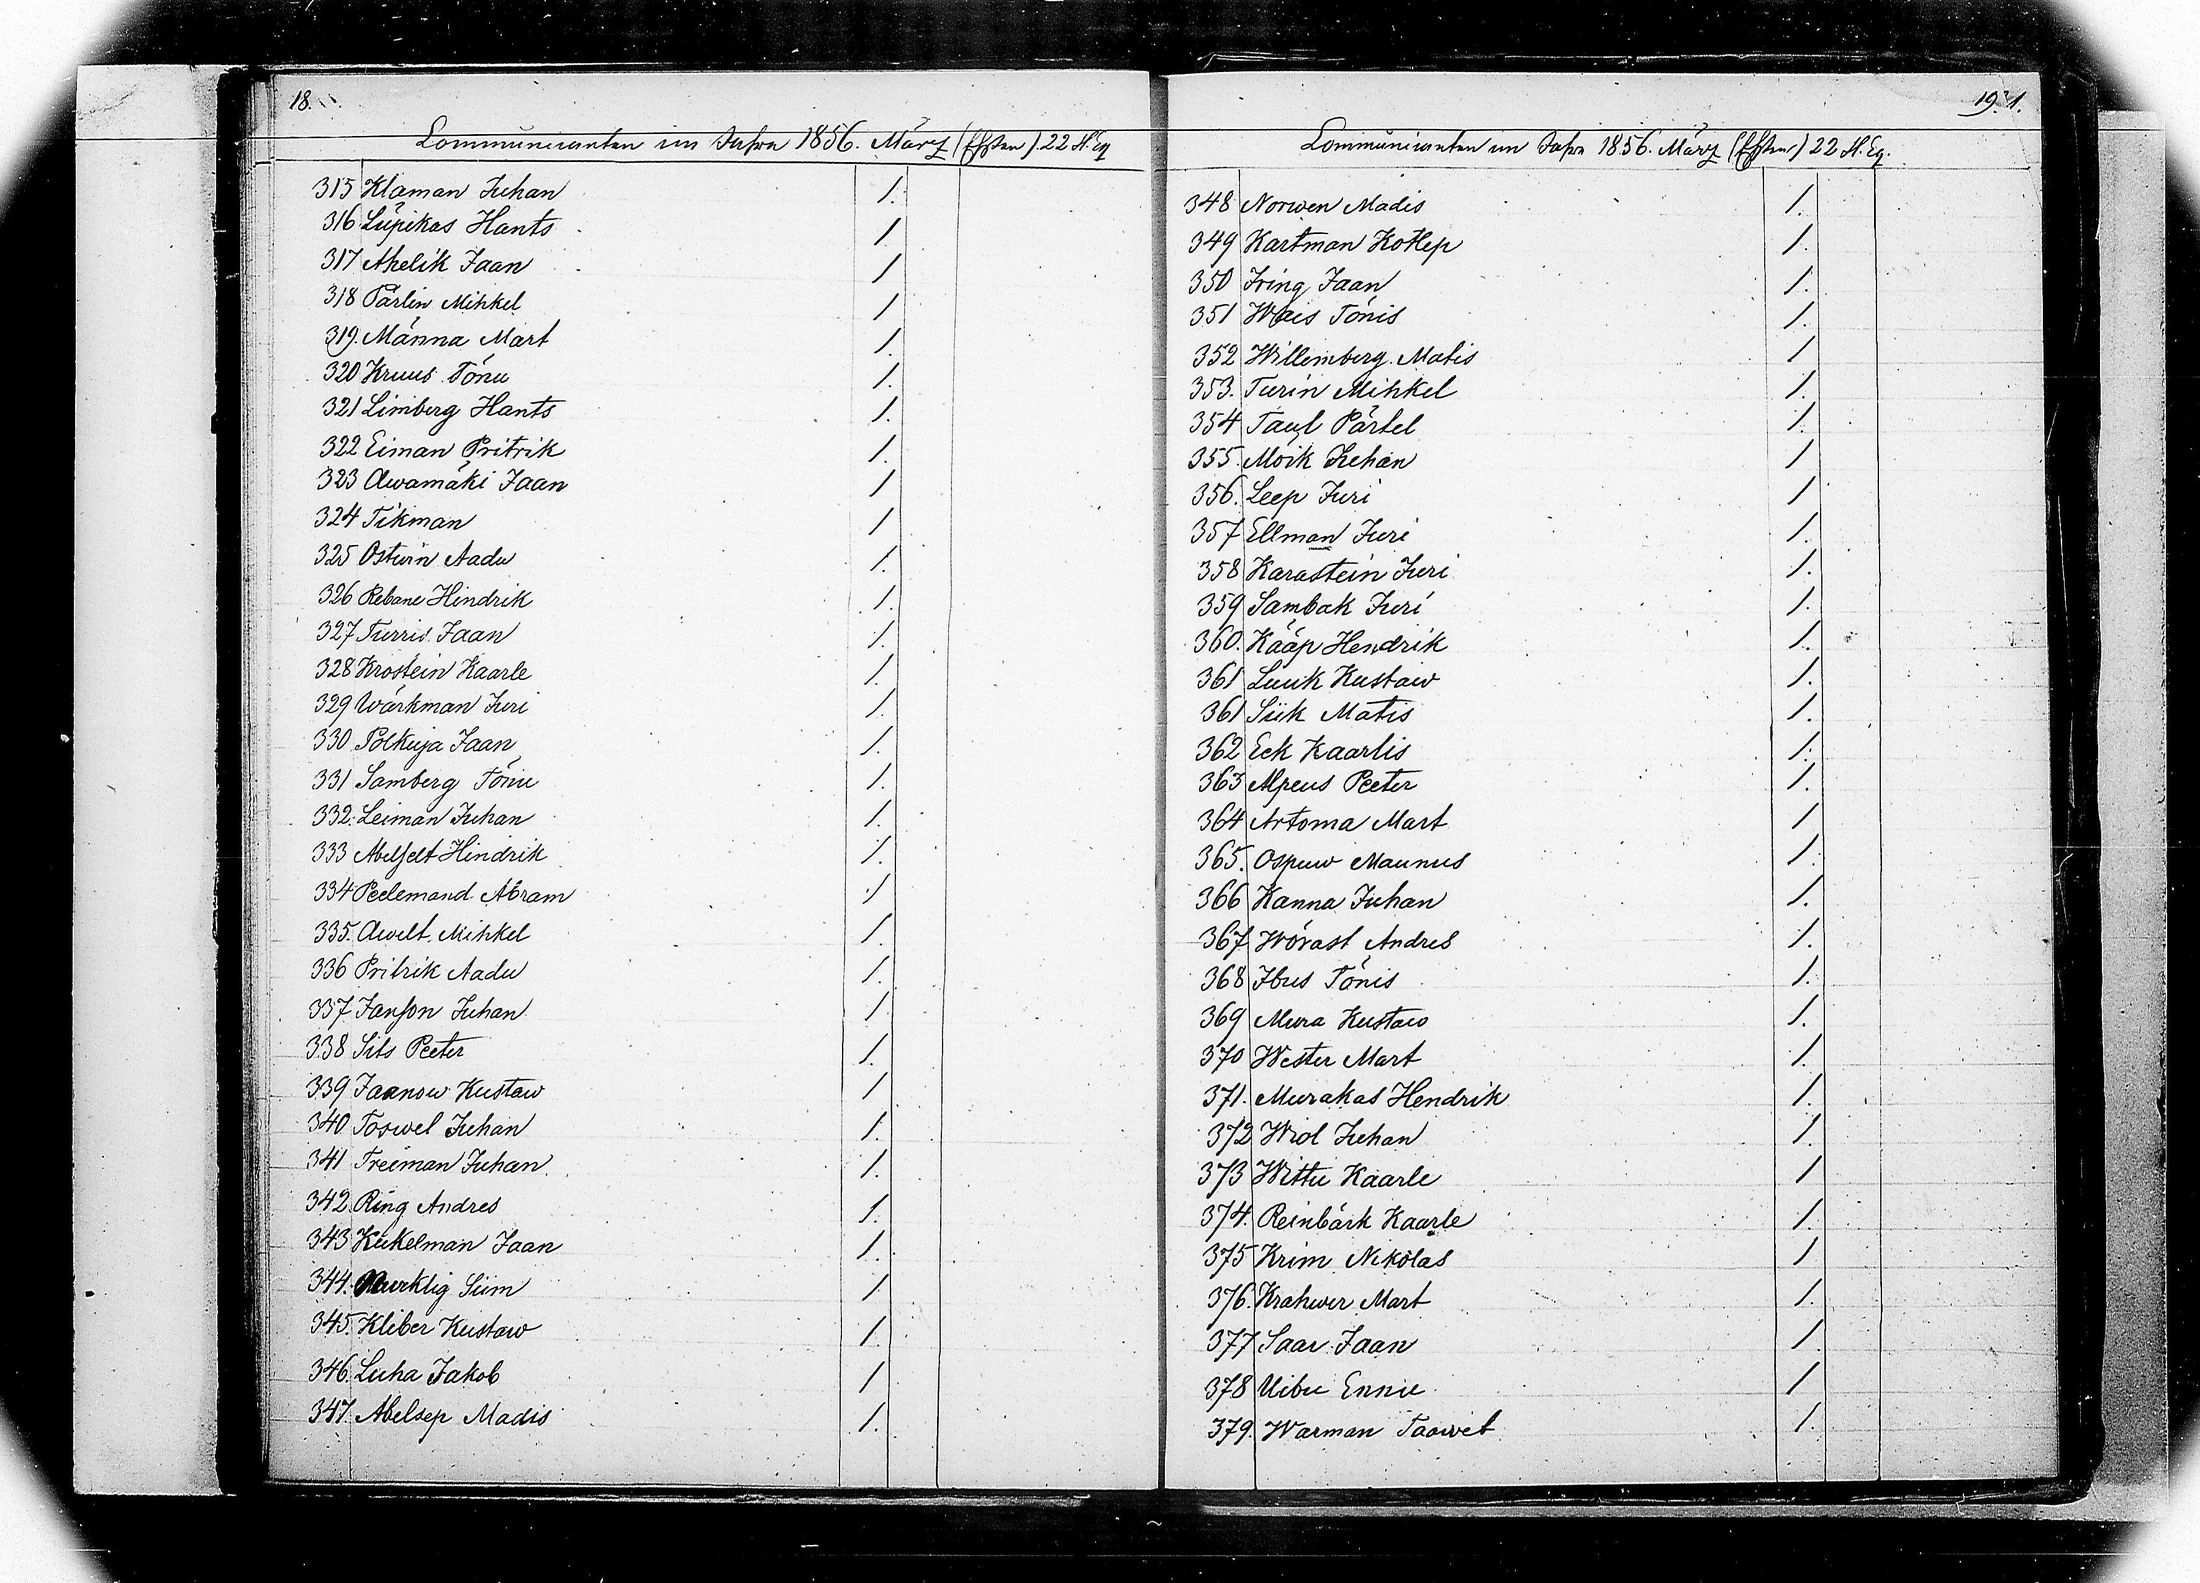 18.
Communicanten im Jahre 1856. März (Ehsten) 22 H. Eg
315 Klaman Juhan 1.
316 Lüpikas Hants 1
317 Ahelik Jaan 1
318 Pärlin Mihkel 1
319. Männa Mart 1.
320 Kruus Tönu 1.
321 Limberg Hants 1.
322 Eiman Pritrik 1.
323 Awamäki Jaan 1
324 Tikman 1
325 Ostwin Aadu 1.
326 Rebane Hindrik 1.
327 Turris Jaan 1.
328 Krostein Kaarle 1.
329 Wärkman Juri 1.
330 Polkuja Jaan 1.
331 Samberg Tönu 1.
332. Leiman Juhan 1.
333 Abelfelt Hindrik 1.
334 Peelemand Abram 1
335. Awelt Mihkel 1.
336 Pritrik Aadu 1.
337 Janson Juhan 1.
338 Sits Peeter 1.
339 Jaanow Kustaw 1
340 Toswel Juhan 1.
341 Treiman Juhan 1.
342 Ring Andres 1.
343 Kukelman Jaan 1.
344. Siim 1
345. Kliber Kustaw 1.
346. Luha Jakob 1
347. Abelsep Madis 1.
19. 1.
Communicanten im Jahre 1856. März (Ehsten) 22 H. Eg.
348 Norwen Madis 1.
349 Kartman Kotlep 1.
350 Iring Jaan 1.
351 Wais Tönis 1.
352 Willemberg Matis 1
353. Turin Mihkel 1.
354 Taul Pärtel 1.
355. Moik Juhan 1
356. Leep Juri 1
357 Ellman Juri 1.
358 Karastein Juri 1.
359 Sambak Juri 1.
360. Kääp Hendrik 1.
361 Luuk Kustaw 1.
361 Siik Matis 1.
362 Eck Kaarlis 1.
363 Alpeus Peeter 1.
364 Artoma Mart 1
365. Ospuw Maunus 1.
366 Kanna Juhan 1.
367 Wörast Andres 1.
368 Ibus Tönis 1.
369 Mura Kustaw 1.
370 Wester Mart 1.
371. Murakas Hendrik 1.
372 Wiol Juhan 1.
373 Wittu Kaarle 1
374. Reinbärk Kaarle 1.
375 Krim Nikolas 1
376. Krahwer Mart 1.
377 Saar Jaan 1.
378 Uibu Ennu 1
379. Warman Taawet 1.